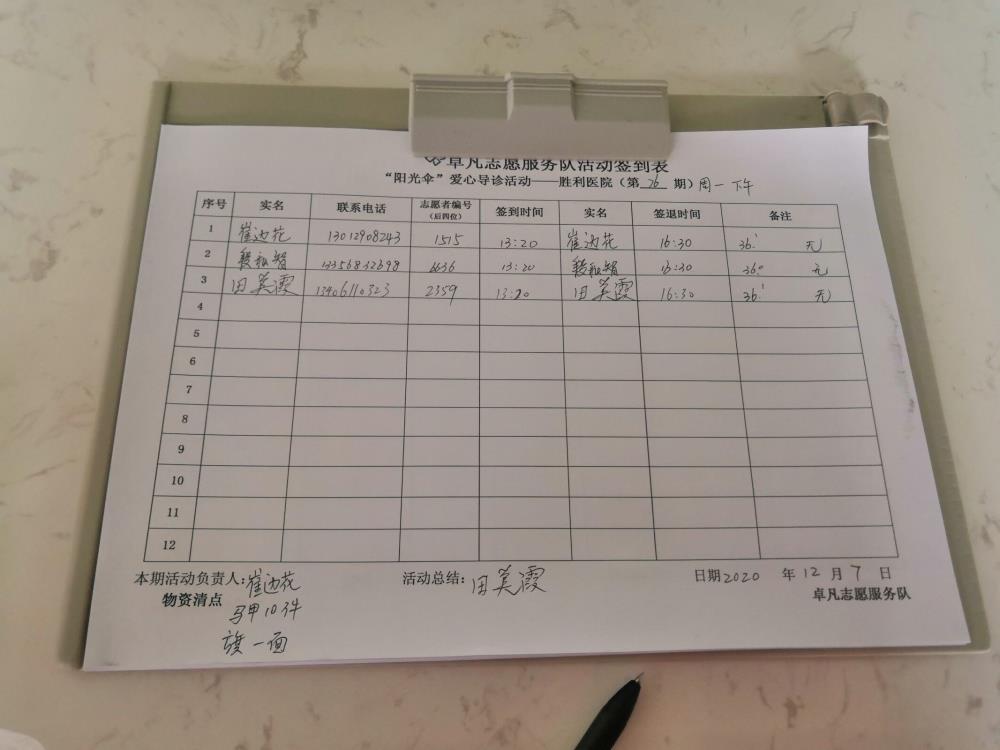 卓凡志愿服务队活动签到表
“阳光伞”爱心导诊活动——胜利医院（第 26 期）周一下午
序号 实名 联系电话 志愿者编号（后四位） 签到时间 实名 签退时间 备注
1 崔边花 13012908243 1515 13:20 崔边花 16:30 36.1 无
2 13356832698 6636 13:20 16:30 36.0 无
3 田美霞 13406110323 2359 13:20 田美霞 16:30 36.1 无
4
5
6
7
8
9
10
11
12
本期活动负责人:崔边花 活动总结: 田美霞 日期2020 年12月7日
物资清点 卓凡志愿服务队
马甲10件
旗一面